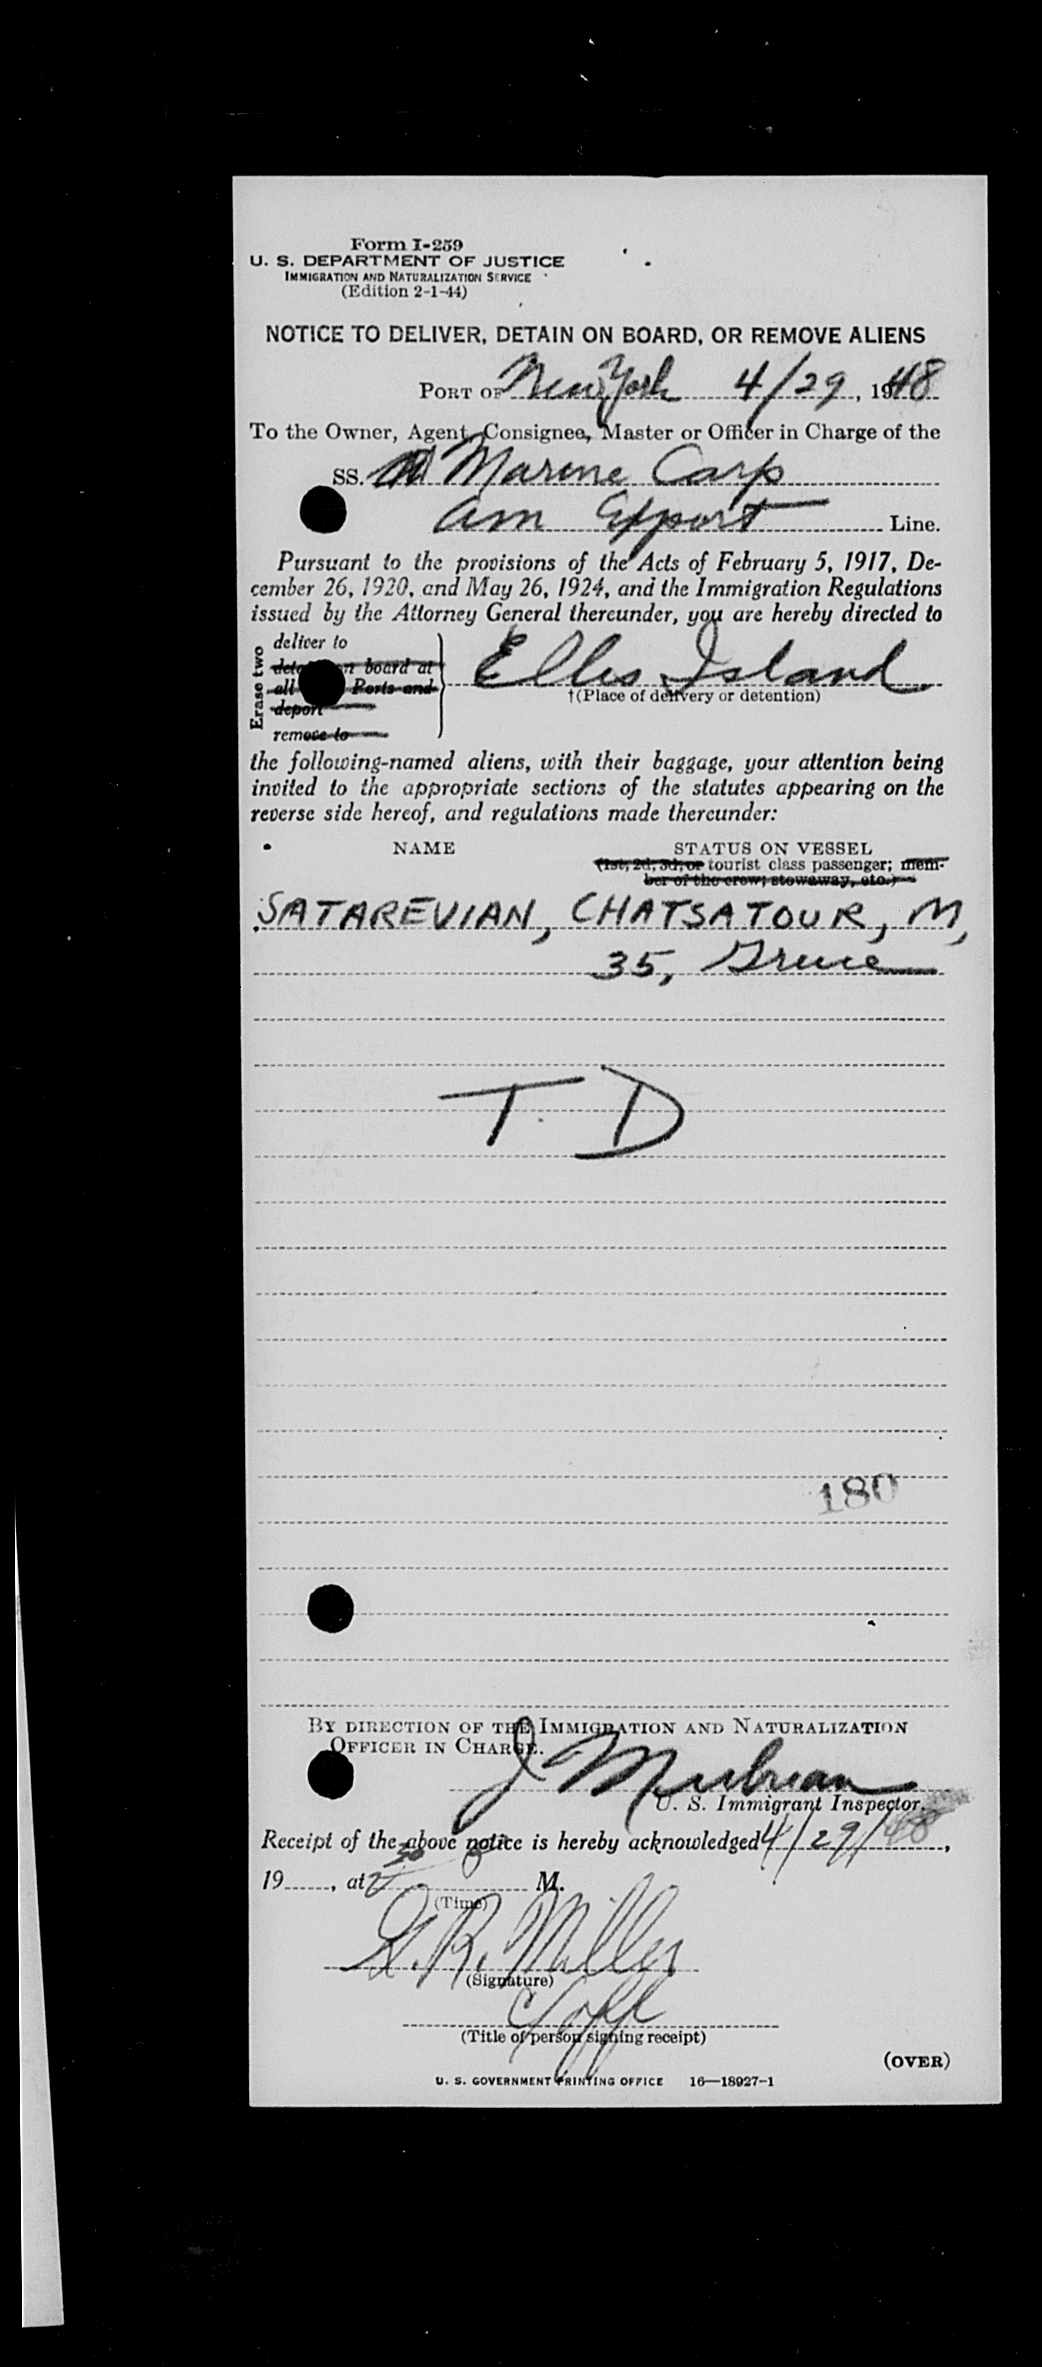 Form I-259
U. S. DEPARTMENT OF JUSTICE
IMMIGRATION AND NATURALIZATION SERVICE
(Edition 2-1-44)
NOTICE TO DELIVER, DETAIN ON BOARD, OR REMOVE ALIENS
PORT OF New York 4/29, 1948
To the Owner, Agent, Consignee, Master or Officer in Charge of the
SS. Marine Carp
Am Export Line.
Pursuant to the provisions of the Acts of February 5, 1917, De-
cember 26, 1920, and May 26, 1924, and the Immigration Regulations
issued by the Attorney General thereunder, you are hereby directed to
Erase two
deliver to
board at
all Ports and
deport
remove to
Ellis Island
†(Place of delivery or detention)
the following-named aliens, with their baggage, your attention being
invited to the appropriate sections of the statutes appearing on the
reverse side hereof, and regulations made thereunder:
NAME STATUS ON VESSEL
(1st, 2d, 3d, or tourist class passenger; mem-
ber of the crew; stowaway, etc.)
SATAREVIAN, CHATSATOUR, M,
35, Greece
T. D
180
BY DIRECTION OF THE IMMIGRATION AND NATURALIZATION
OFFICER IN CHARGE.
J
U. S. Immigrant Inspector.
Receipt of the above notice is hereby acknowledged 4/29/48,
19 , at M.
(Time)
Miller
(Signature)
(Title of person signing receipt)
(OVER)
U. S. GOVERNMENT PRINTING OFFICE 16—18927-1